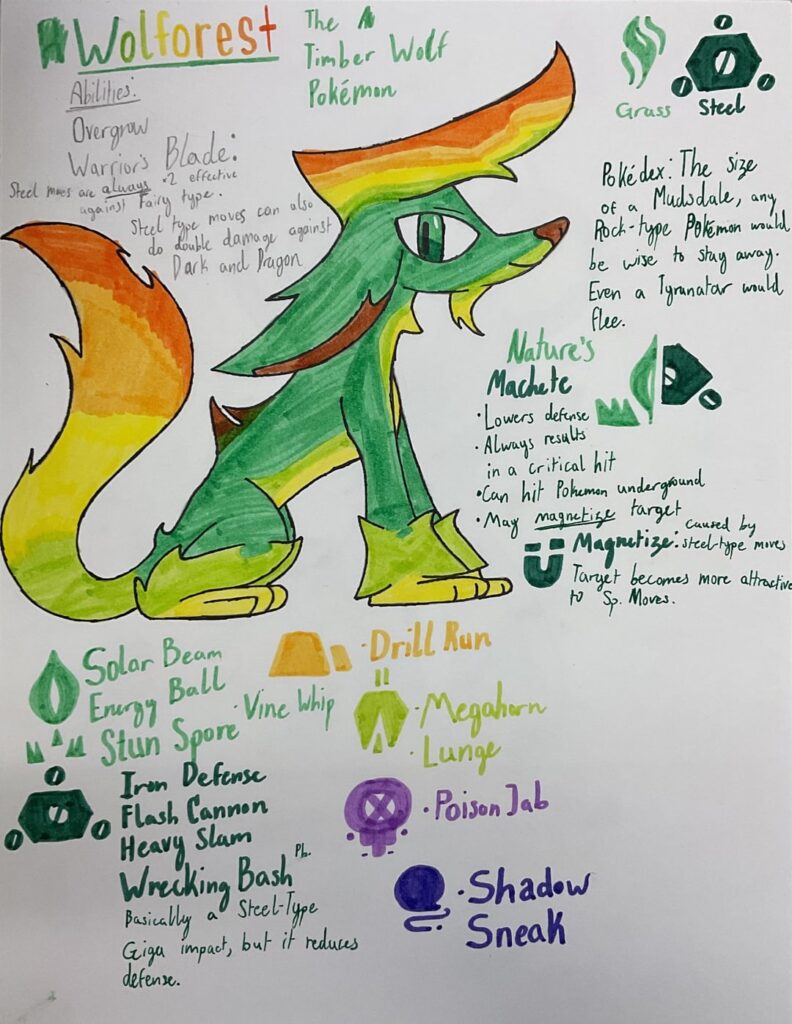 Wolforest
The
Timber Wolf
Pokémon
Grass
Steel
Abilities:
Overgrow
Warrior's Blade:
Steel moves are always x2 effective
against Fairy type.
Steel type moves can also
do double damage against
Dark and Dragon
Pokédex: The size
of a Mudsdale, any
Rock-type Pokémon would
be wise to stay away.
Even a Tyranatar would
flee.
Nature's
Machete
• Lowers defense
• Always results
in a critical hit
• Can hit Pokemon underground
• May magnetize target
Magnetize: caused by
steel-type moves
Target becomes more attractive
to Sp. Moves.
Solar Beam
Energy Ball
Stun Spore
• Vine Whip
• Drill Run
• Megahorn
• Lunge
Iron Defense
Flash Cannon
Heavy Slam
Wrecking Bash Ph.
Basically a Steel-Type
Giga impact, but it reduces
defense.
• Poison Jab
• Shadow
Sneak